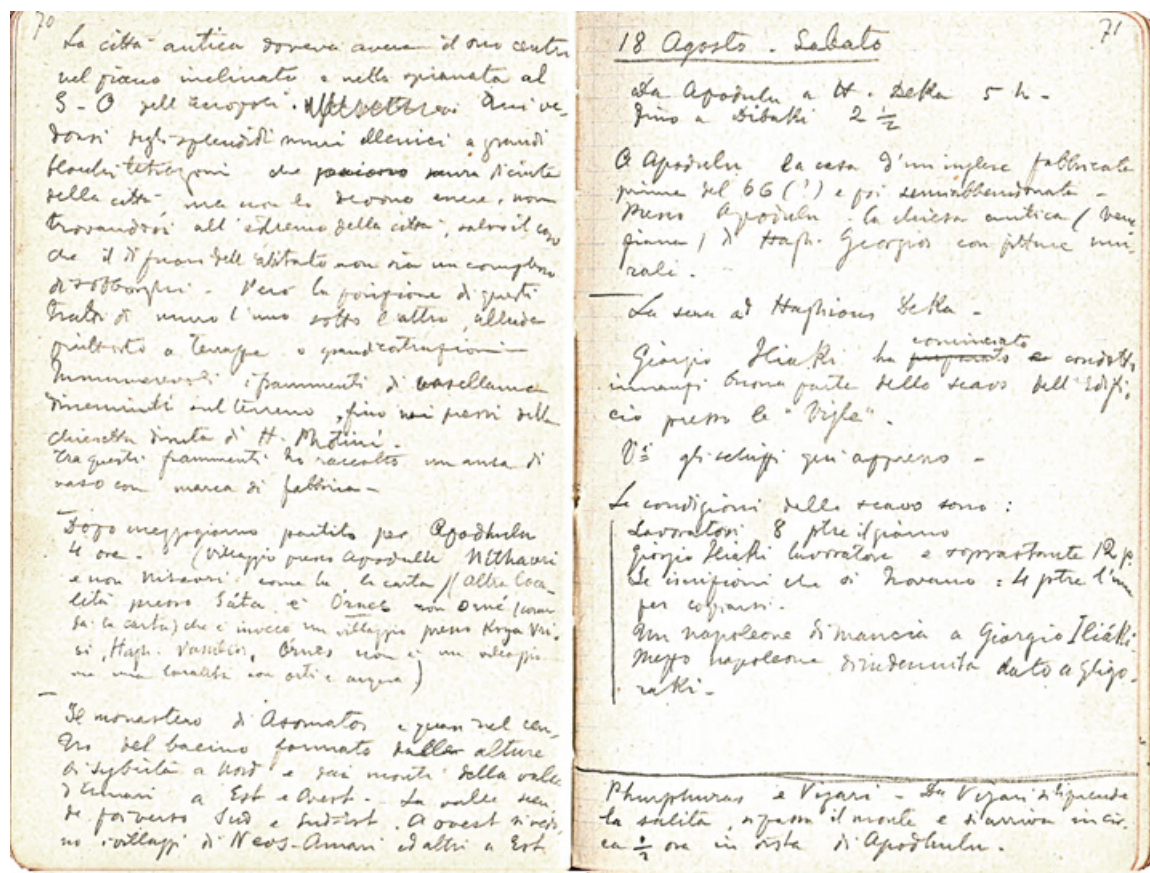 70
La città antica doveva avere il suo centro
nel piano inclinato e nella spianata al
S-O dell'acropoli. Quivi ve-
donsi degli splendidi muri ellenici a grandi
blocchi tetragoni che paiono mura di cinta
della città ma non lo devono essere, non
trovandosi all'estremo della città, salvo il caso
che il di fuori dell'abitato non sia un complesso
di sobborghi. Però la posizione di questi
tratti di muro l'uno sotto l'altro, allude
piuttosto a terrazze o grandi costruzioni
Innumerevoli i frammenti di vasellame
disseminati sul terreno, fino nei pressi della
chiesetta diruta di H. Photini.
Tra questi frammenti ho raccolto un'ansa di
vaso con marca di fabbrica -
Dopo mezzogiorno partito per Apodhulu
4 ore - (villaggio presso Apodulu Nithavri
e non Nisavri come ha la carta) (Altre loca-
lità presso Sáta è Órnes non Orné (come
sa la carta) che è invece un villaggio presso Krya Vri-
si, Hagh. Vasilios, Órnes non è un villaggio
ma una località con orti e acqua)
Il monastero di Asomatos è quasi nel cen-
tro del bacino formato dalle alture
di Sybrita a Nord e dai monti della valle
d'Amari a Est e Ovest. La valle scen-
de poi verso Sud e Sud-Est. A ovest si vedo-
no i villaggi di Neos-Amari ed altri a Est
71
18 Agosto. Sabato
Da Apodulu a H. Deka 5 h -
Fino a Dibaki 2 ½
A Apodulu la casa d'un inglese fabbricata
prima del 66 (?) e poi semiabbandonata -
Presso Apodulu la chiesa antica (vene
ziana) di Hagh. Georgios con pitture mu-
rali.
La sera ad Haghious Deka -
cominciato
Giorgio Iliaki ha condotto
innanzi buona parte dello scavo dell'Edifi-
cio presso le "Vigle".
Vi gli schizzi qui appresso -
Le condizioni dello scavo sono:
Lavoratori 8 ptre il giorno
Giorgio Iliaki lavoratore e soprastante 12 p.
Le iscrizioni che si trovano: 4 ptre l'una
per copiarsi.
Un napoleone di mancia a Giorgio Iliáki
Mezzo napoleone d'indennità dato a Gligo-
raki -
Phurphuras e Vizari - Da Vizari si riprende
la salita, si passa il monte e si arriva in cir-
ca ½ ora in vista di Apodhulu.